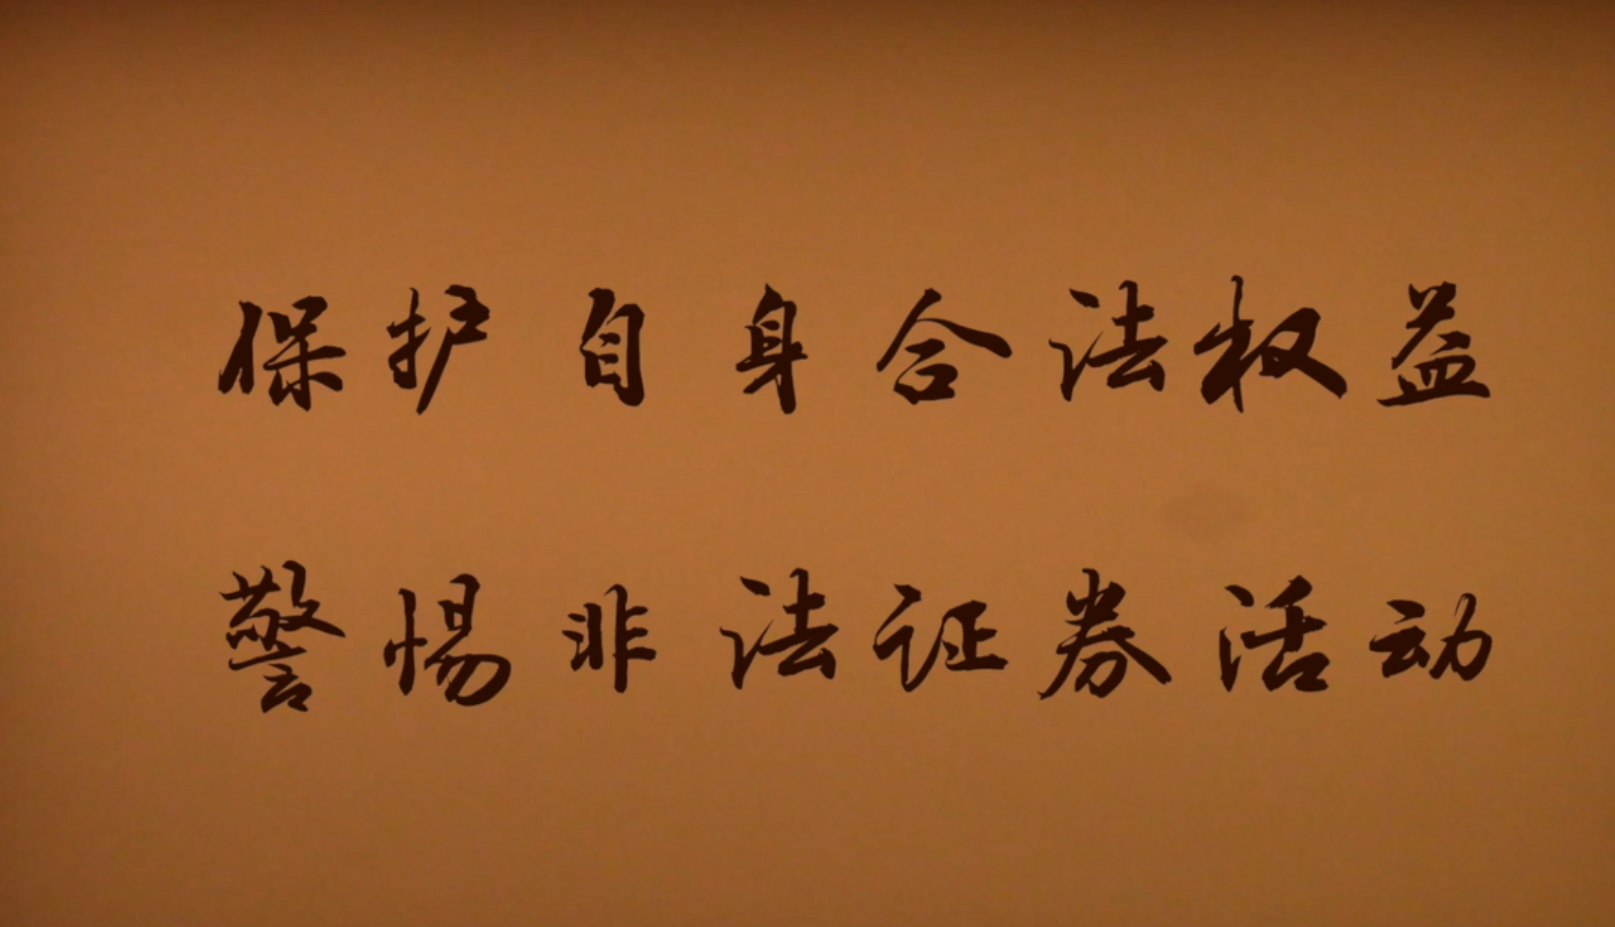 保护自身合法权益
警惕非法证券活动